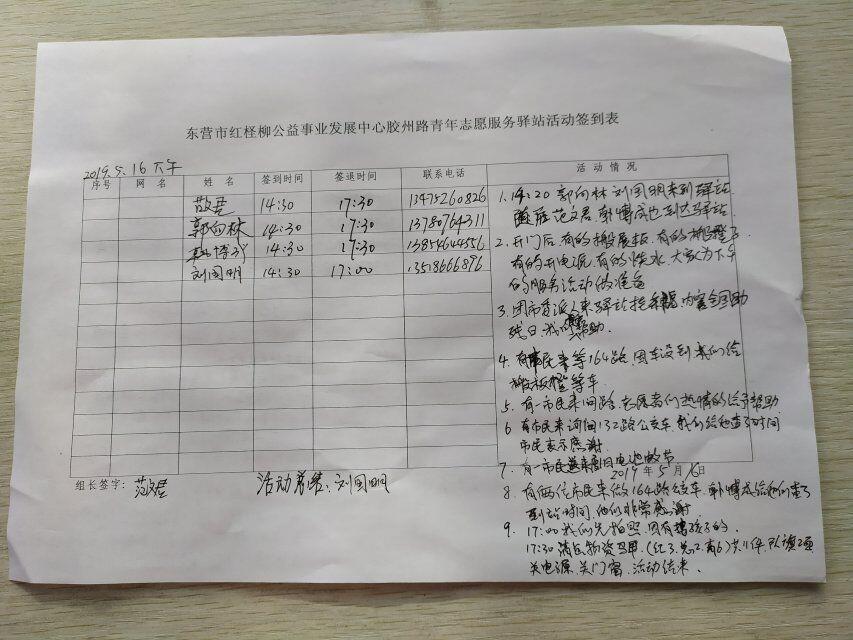 东营市红柽柳公益事业发展中心胶州路青年志愿服务驿站活动签到表
2019.5.16下午
序号 网名 姓名 签到时间 签退时间 联系电话 活动情况
14:30 17:30 13475260826
郭向林 14:30 17:30 13780764311
14:30 17:30 13854644556
刘国明 14:30 17:00 13518666896
1.14:20 郭向林 刘国明来到驿站
随后范文君 郭博成也到达驿站
2.开门后,有的搬展板,有的搬凳子
有的开电源,有的烧水,大家为下午
的服务活动做准备
3.团市委派人来驿站挂 内容全国助
残日,我们帮助.
4.有市民来等164路,因车没到我们给
搬板凳等车
5.有一市民来问路,志愿者们热情的给予帮助
6 有市民来询问132路公交车,我们给他查了时间
市民表示感谢.
7.有一市民送来旧电池数节
2019年5月16日
8.有两位市民来做164路公交车,郭博成给他们查了
到站时间,他们非常感谢
9.17:00我们先拍照,因有带孩子的.
17:30清点物资马甲,(红3,兰2,高6)共11件,队旗2面
关电源,关门窗,活动结束.
组长签字: 范文君 活动总结:刘国明